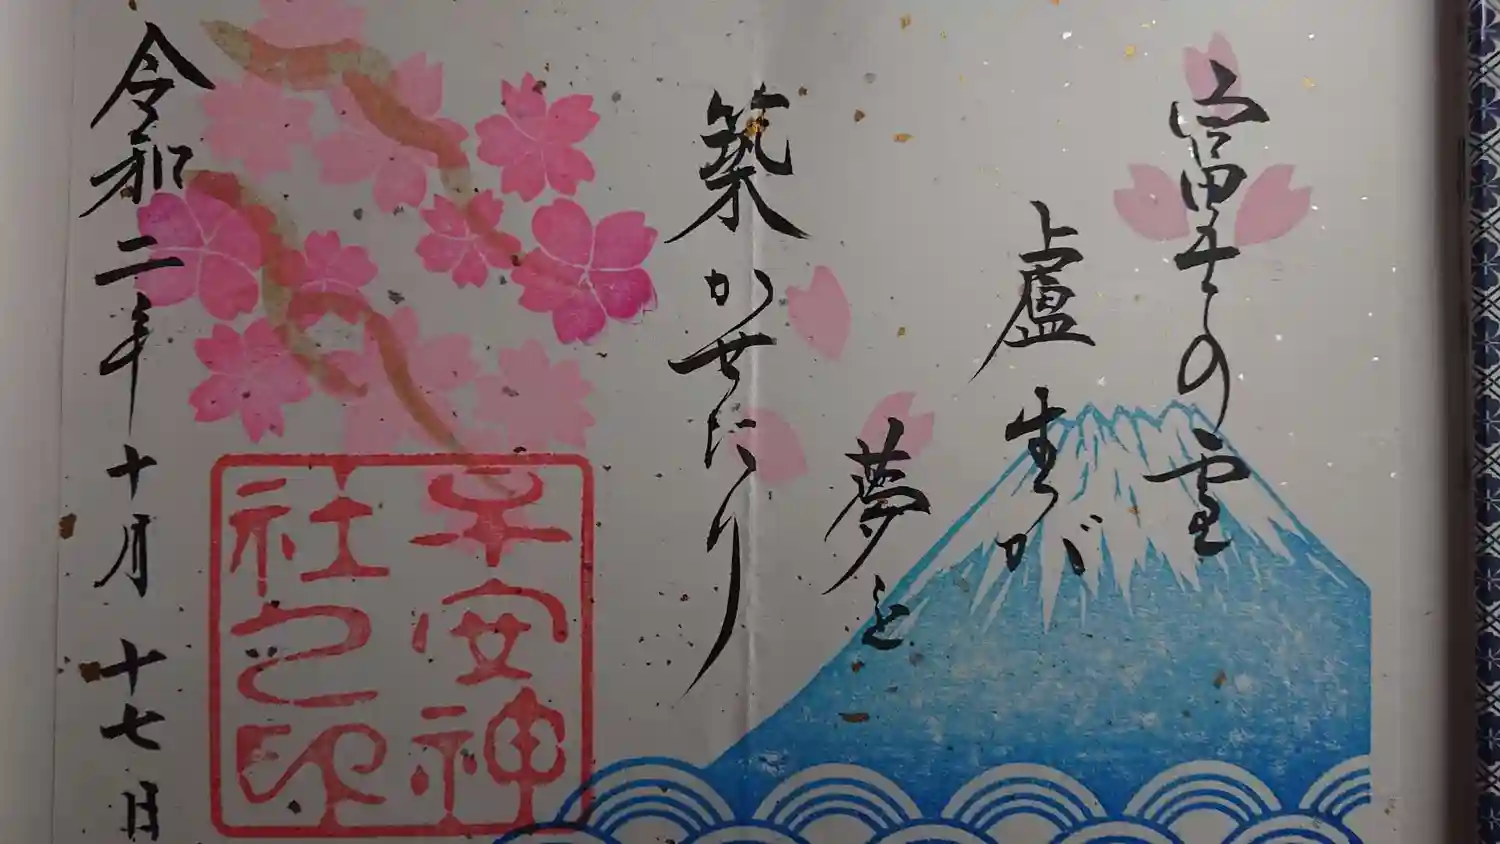 富士の雪
盧生が
夢を
築かせたり
令和二年十月十七日
子安神
社之印